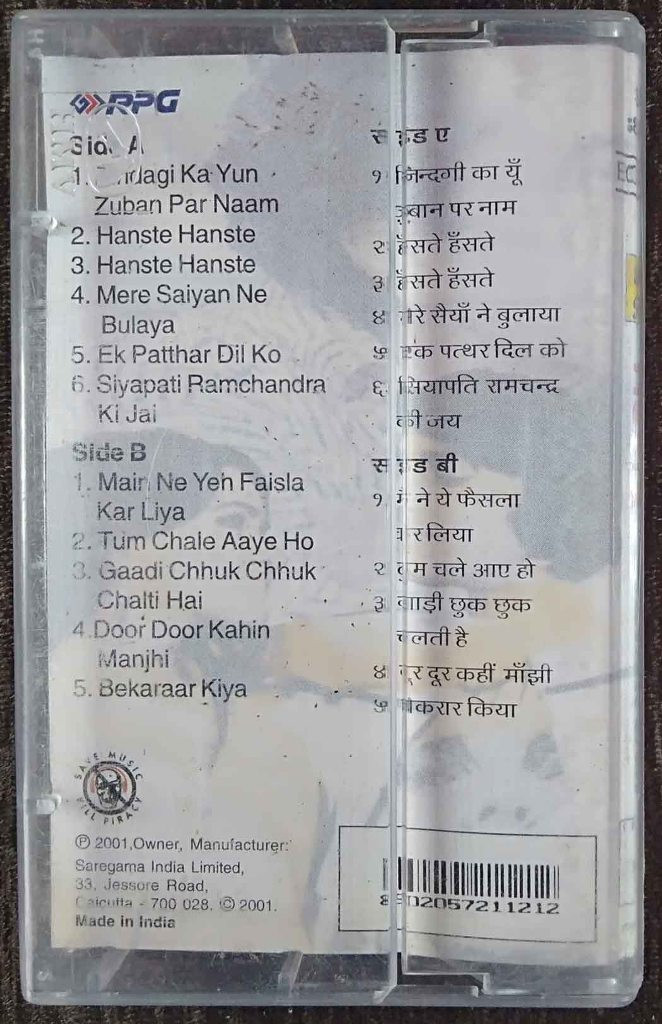 RPG
Side A
1. Zindagi Ka Yun
Zuban Par Naam
2. Hanste Hanste
3. Hanste Hanste
4. Mere Saiyan Ne
Bulaya
5. Ek Patthar Dil Ko
6. Siyapati Ramchandra
Ki Jai
Side B
1. Main Ne Yeh Faisla
Kar Liya
2. Tum Chale Aaye Ho
3. Gaadi Chhuk Chhuk
Chalti Hai
4. Door Door Kahin
Manjhi
5. Bekaraar Kiya
साइड ए
१ ज़िन्दगी का यूँ
ज़ुबान पर नाम
२ हँसते हँसते
३ हँसते हँसते
४ मेरे सैयाँ ने बुलाया
५ एक पत्थर दिल को
६ सियापति रामचन्द्र
की जय
साइड बी
१ मैं ने ये फैसला
कर लिया
२ तुम चले आए हो
३ गाड़ी छुक छुक
चलती है
४ दूर दूर कहीं माँझी
५ बेकरार किया
SAVE MUSIC
KILL PIRACY
℗ 2001, Owner, Manufacturer:
Saregama India Limited,
33, Jessore Road,
Calcutta - 700 028. © 2001.
Made in India
8902057211212